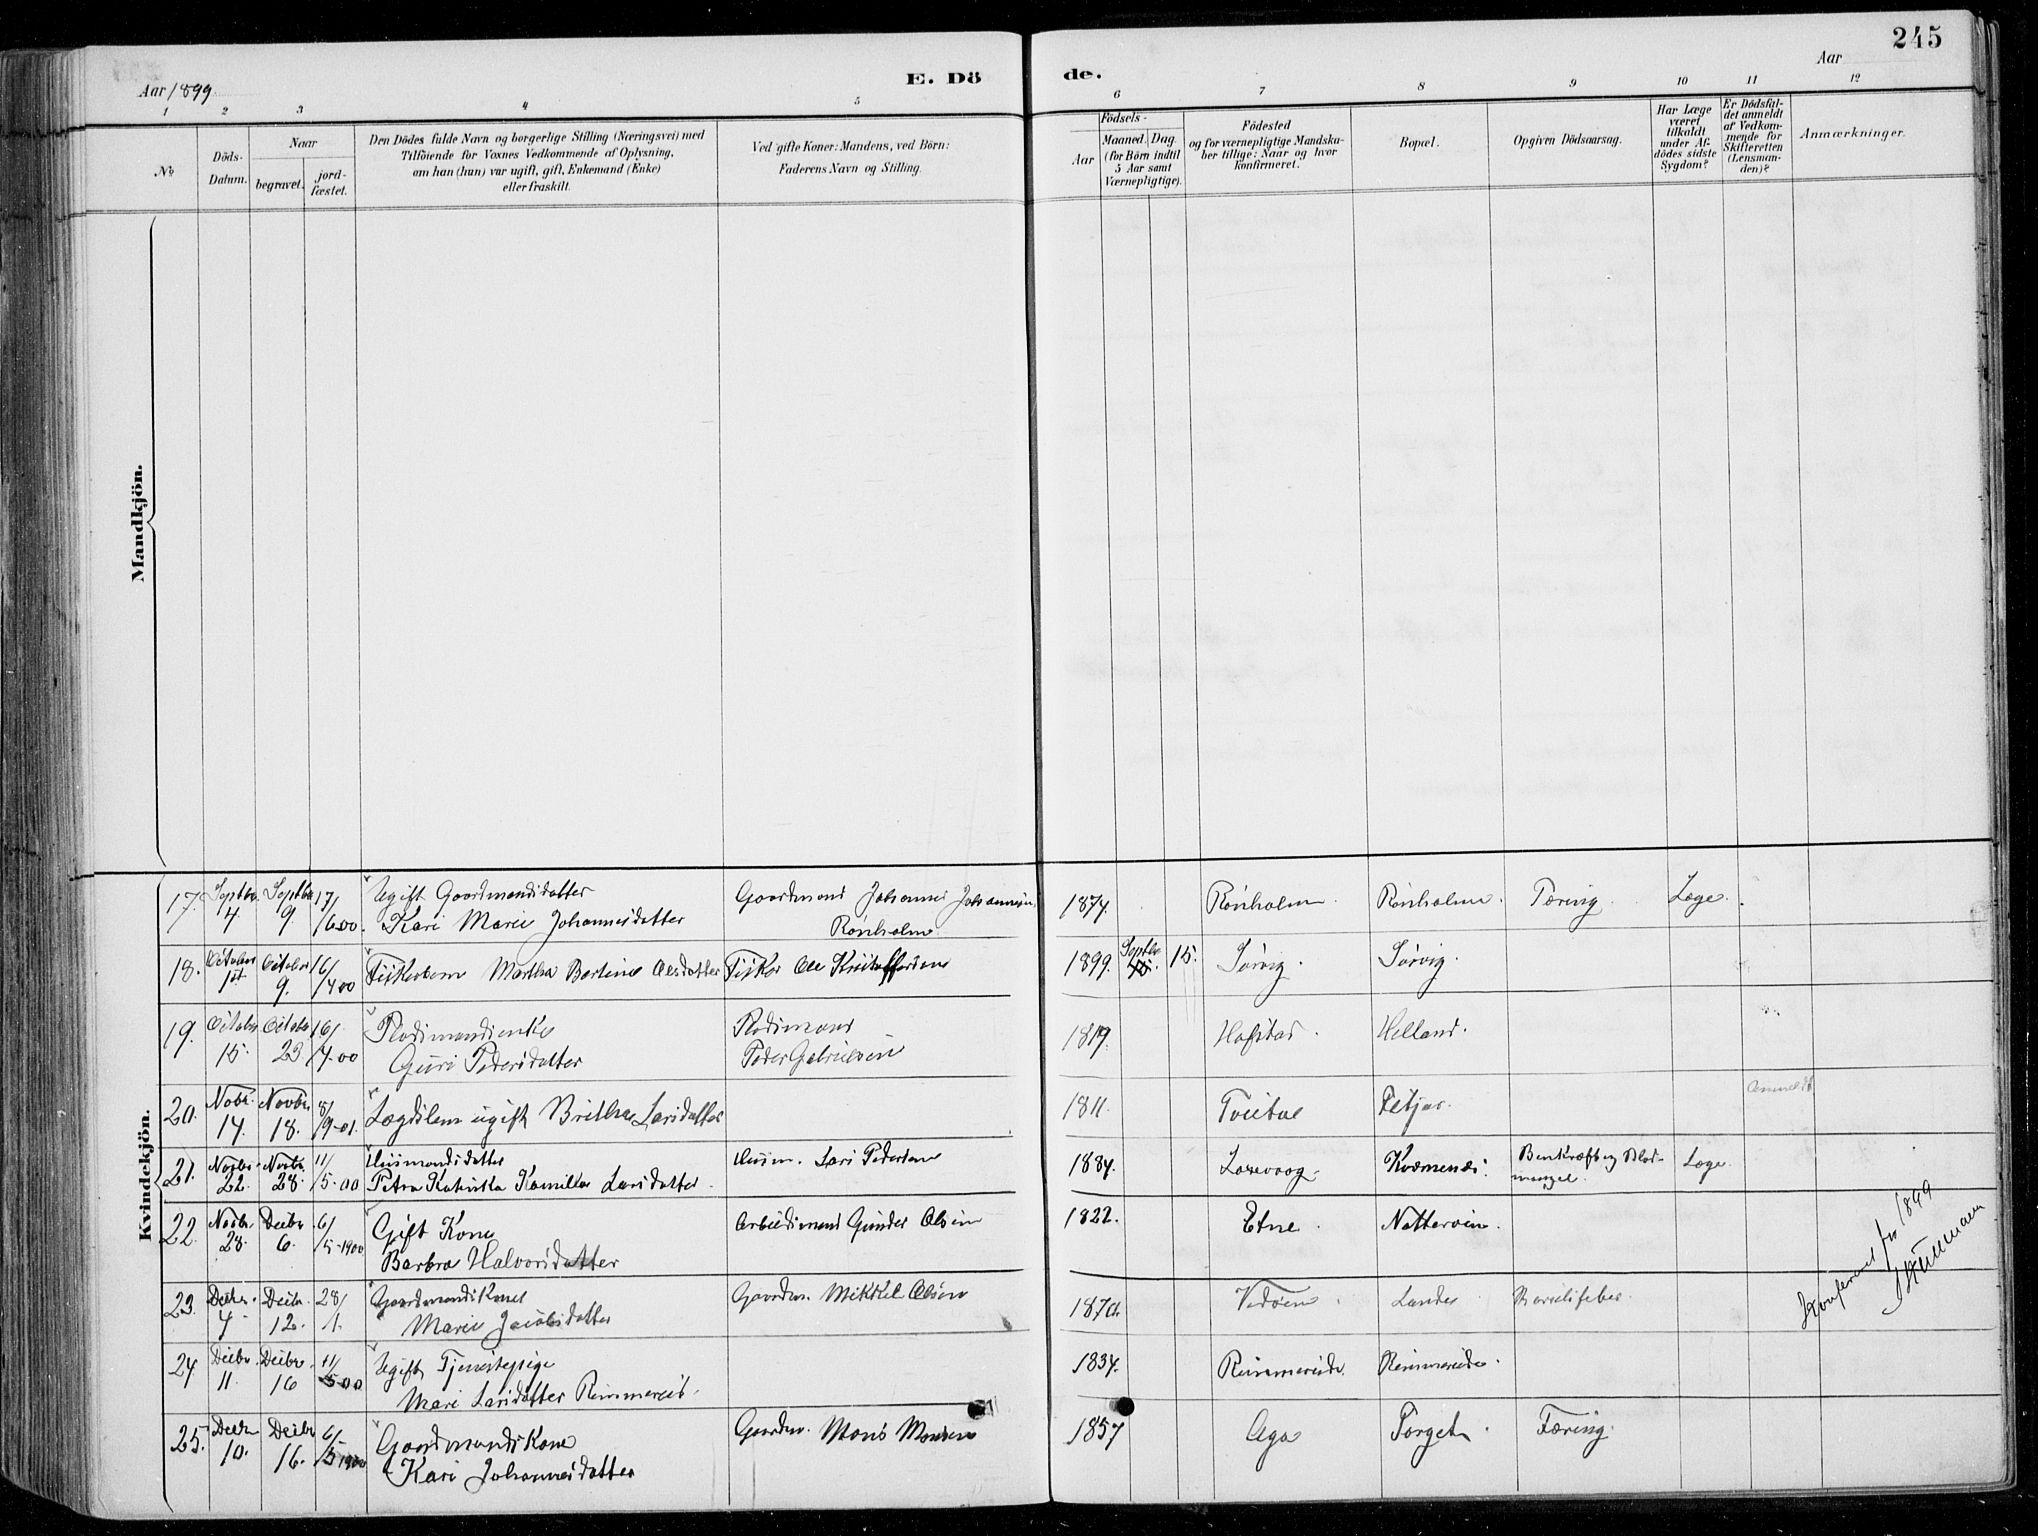 245
Aar 1899.
E. Dö
de.
Aar
1
2
3
4
5
6
7
8
9
10
11
12
No
Döds-
Datum.
Naar
begravet.
jord-
fæstet.
Den Dödes fulde Navn og borgerlige Stilling (Næringsvei) med
Tilföiende for Voxnes Vedkommende af Oplysning,
om han (hun) var ugift, gift, Enkemand (Enke)
eller fraskilt.
Ved gifte Koner: Mandens, ved Börn:
Faderens Navn og Stilling.
Födsels-
Aar
Maaned. Dag.
(for Börn indtil
5 Aar samt
Værnepligtige).
Födested
og for værnepligtige Mandska-
ber tillige: Naar og hvor
konfirmeret.
Bopæl.
Opgiven Dödsaarsag.
Har Læge
været
tilkaldt
under Af-
dödes sidste
Sygdom?
Er Dödsfal-
det anmeldt
af Vedkom-
mende for
Skifteretten
(Lensman-
den)?
Anmærkninger.
Mandkjön.
Kvindekjön.
17. Septbr. 4 Septbr 9. 17/6 00. Ugift Gaardmandsdatter
Kari Marie Johannesdatter
Gaardmand Johannes Johannesen
Rönholm
1874. Rönholm. Rönholm. Tæring. Læge.
18. October 1st October 9. 16/4 00 Fiskerbarn Martha Bertine Olsdatter Fisker Ole Kristoffersen 1899. Septbr. 15. Sörvig. Sörvig.
19. October 15. October 23 16/4.00 Pladsmandsenke
Guri Pedersdatter
Pladsmand
Peder Gabrielsen
1819. Hofstad. Helland.
20. Novbr. 14. Novbr. 18. 8/9-01. Lægdslem ugift Britha Larsdatter 1811. Tveitae Fitjar. Anmeldt
21. Novbr. 22. Novbr. 28. 11/5-00 Husmandsdatter
Petra Katinka Kamilla Larsdatter. Husm. Lars Pedersen 1884. Koromenæs. Benkræft og Blod-
mangel. Læge.
22. Novbr. 28. Decbr. 6. 6/5-1900 Gift Kone
Barbra Halvorsdatter
Arbeidsmand Gunder Olsen 1822. Etne. Nattervin.
23. Decbr. 4 Decbr. 12. 28/1. Gaardmandskone
Marie Jacobsdatter
Gaardm. Mikkel Olsen 1870. Vedöen. Landes Barselsfeber.
24. Decbr. 11. Decbr. 16 11/5 00 Ugift Tjenestepige
Mari Larsdatter Rimmereid. 1834. Rimmereide. Rimmereide.
25. Decbr. 10. Decbr. 16. 6/5 1900 Gaardmandskone
Kari Johannesdatter
Gaardm. Mons Monsen 1857 Aga Torget. Tæring.
Konfereret for 1899